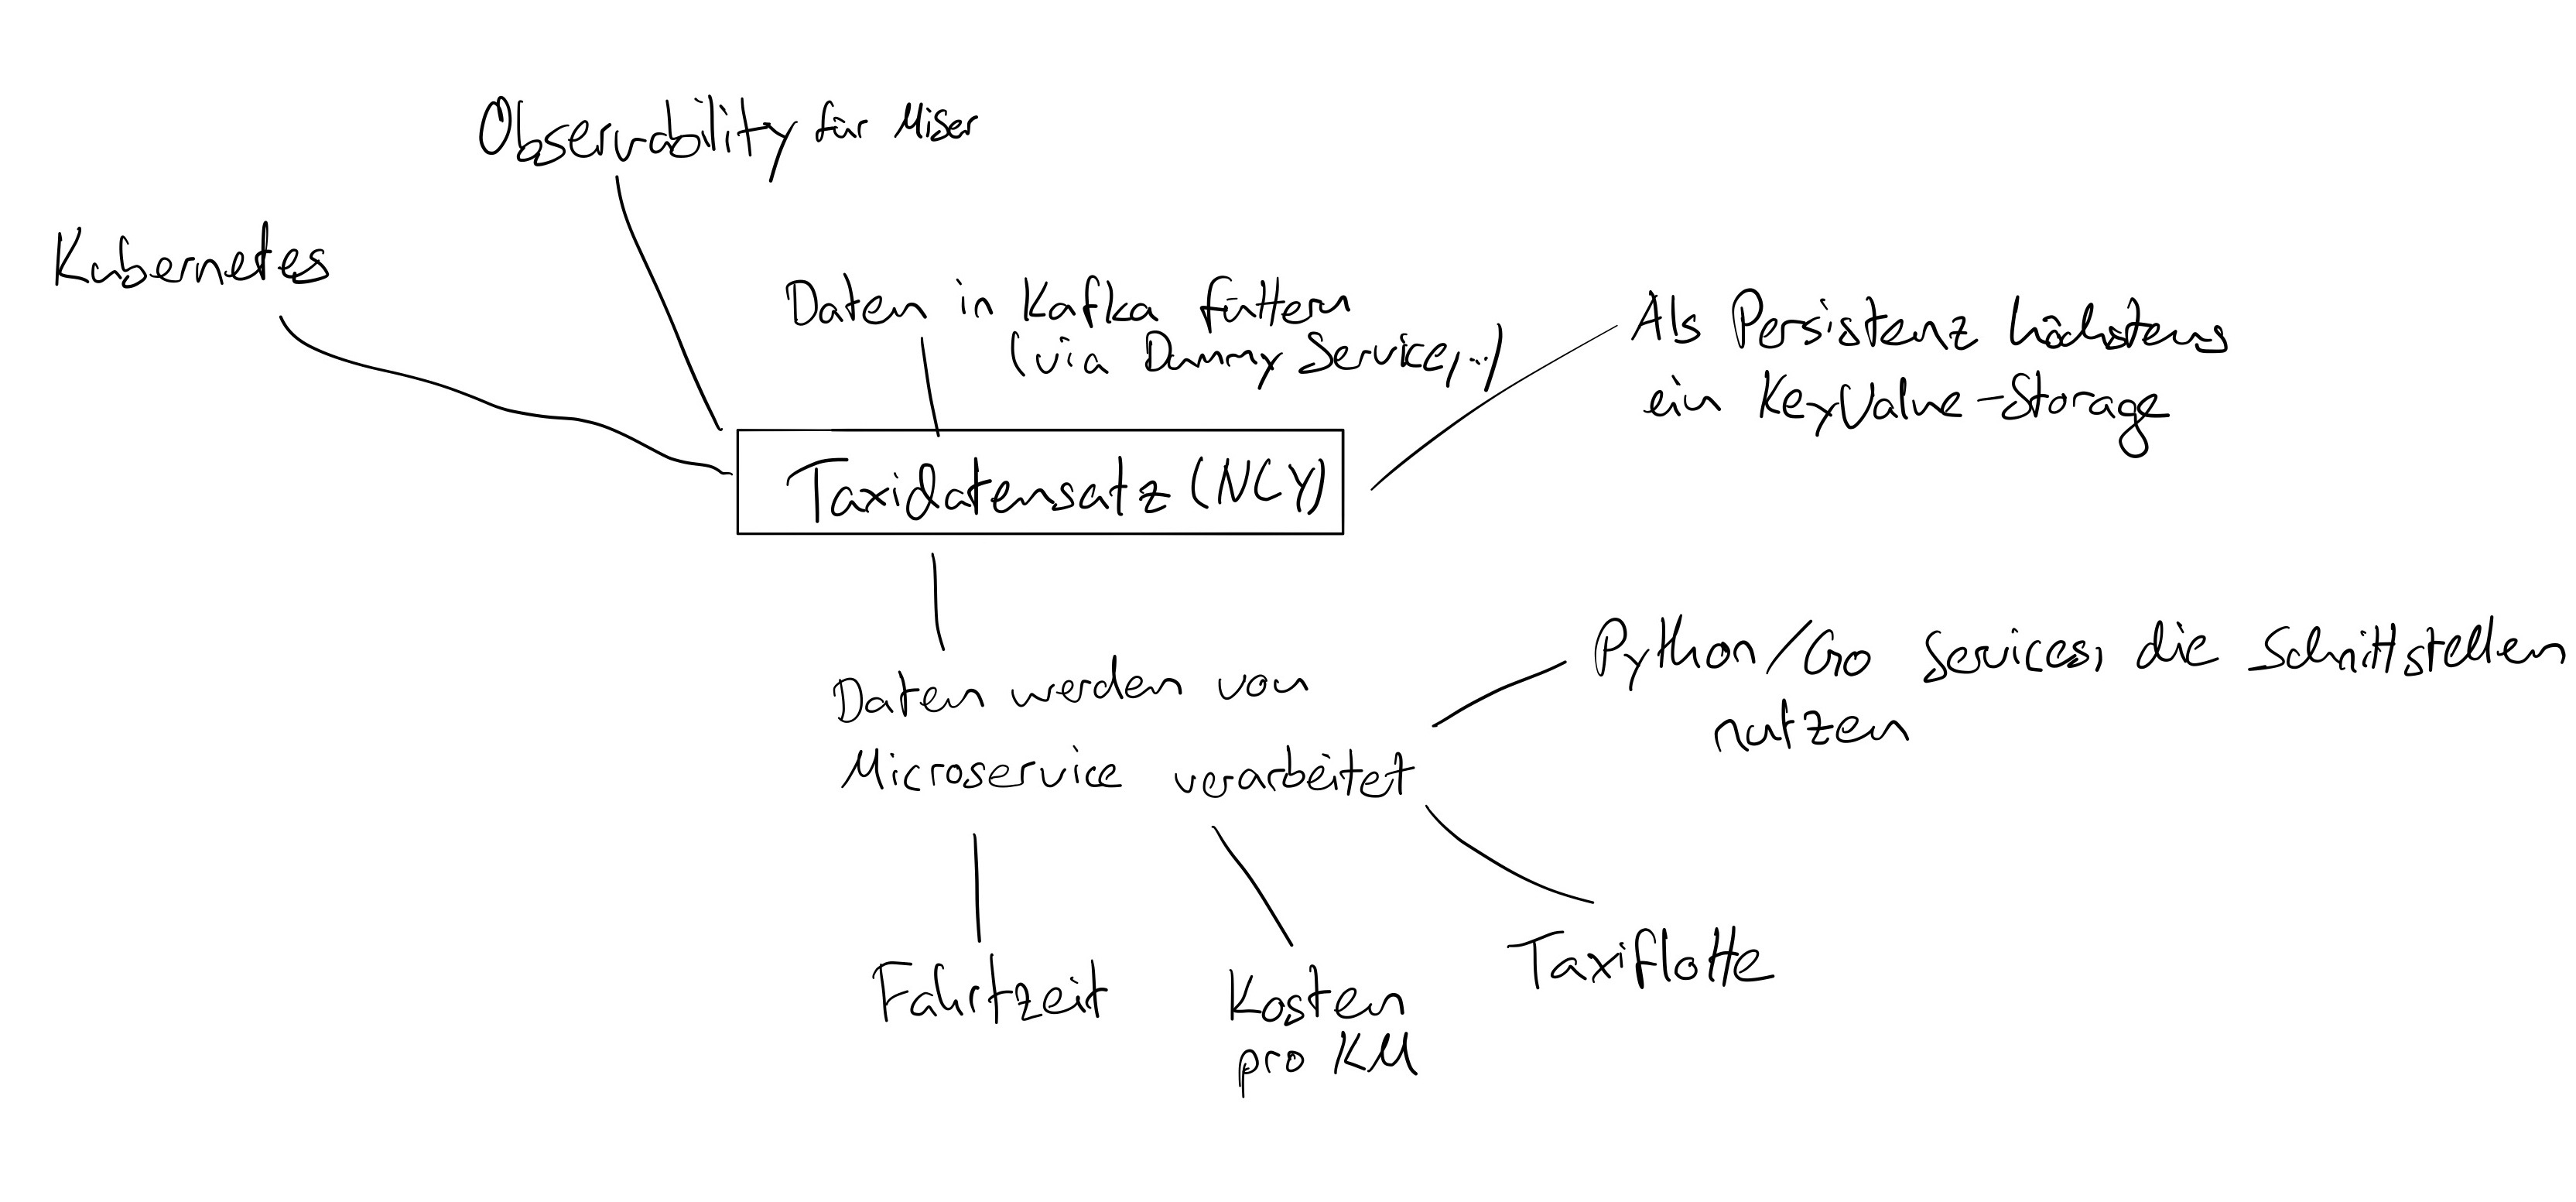 Observability für Miser
Kubernetes
Daten in Kafka füttern
(via Dummy Service,..)
Als Persistenz höchstens
ein KeyValue-Storage
Taxidatensatz (NCY)
Daten werden von
Microservice verarbeitet
Python/Go Services, die Schnittstellen
nutzen
Fahrtzeit
Kosten
pro KM
Taxiflotte